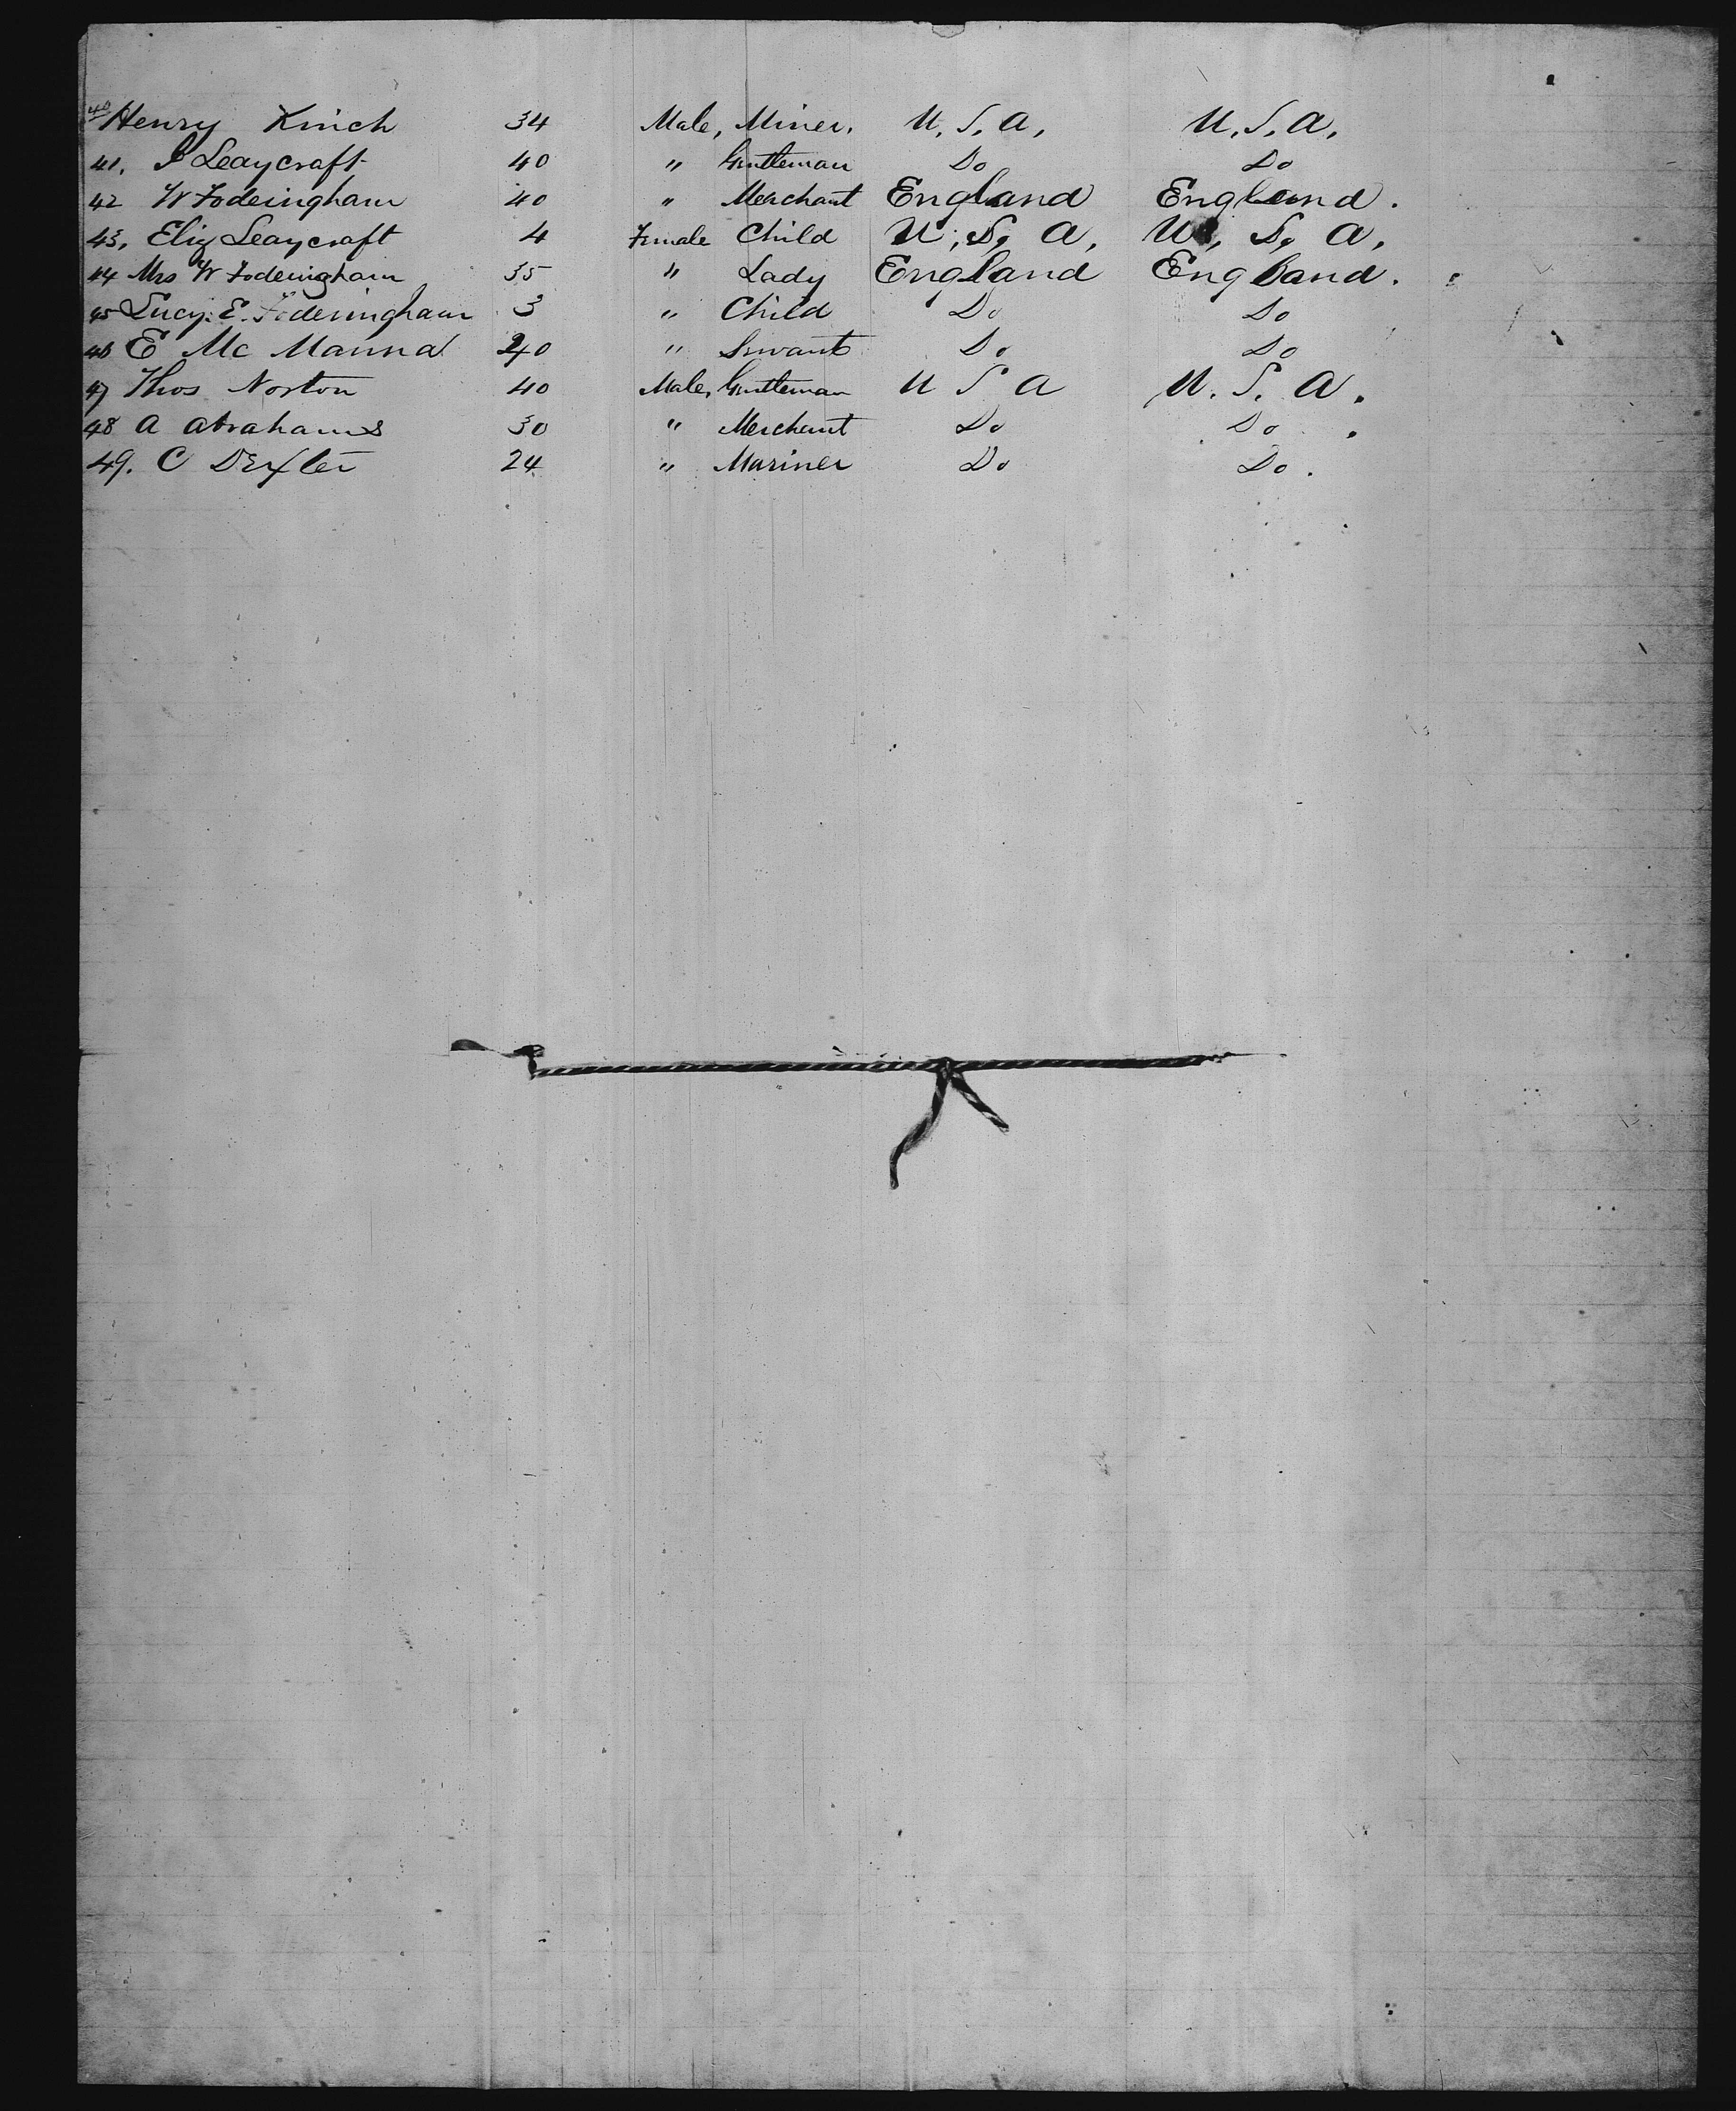 40 Henry Kinch 34 Male, Miner. U. S. A, U. S. A,
41. J Leaycraft 40 " Gentleman Do Do
42 W Foderingham 40 " Merchant England England.
43, Eliz Leaycraft 4 Female Child U. S. A, U. S. A,
44 Mrs W Foderingham 35 " Lady England England.
45 Lucy. E. Foderingham 3 " Child Do Do
46 E Mc Manna 20 " Servant Do Do
47 Thos Norton 40 Male, Gentleman U S A U. S. A.
48 A Abrahams 30 " Merchant Do Do
49. C Dexter 24 " Mariner Do Do.